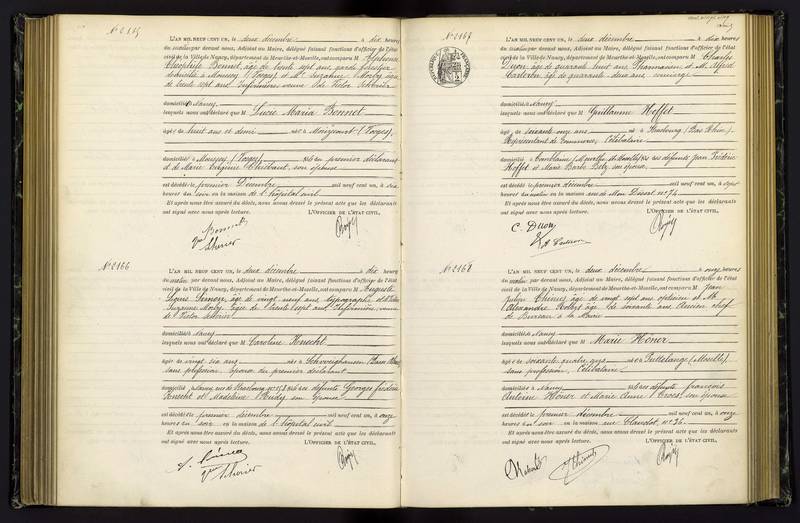 N° 2165
L'AN MIL NEUF CENT UN, le deux décembre à dix heures
du matin par devant nous, Adjoint au Maire, délégué faisant fonctions d'officier de l'état
civil de la Ville de Nancy, département de Meurthe-et-Moselle, ont comparu M Alphonse
Bonnet, âgé de trente sept ans, garde forestier
domicilié à Moussey (Vosges) et Me Suzanne Morly âgée
de trente sept ans, Infirmière veuve de Victor
domiciliés à Nancy
lesquels nous ont déclaré que M Lucie Maria Bonnet
âgée de huit ans et demi née à (Vosges)
domiciliée à Moussey (Vosges) fille du premier déclarant
et de Marie Virginie Thiébaut, son épouse
est décédée le premier Décembre mil neuf cent un, à six
heures du soir en la maison de l'hôpital civil
Et après nous être assuré du décès, nous avons dressé le présent acte que les déclarants
ont signé avec nous après lecture. L'OFFICIER DE L'ÉTAT CIVIL,
Bonnet
N° 2166
L'AN MIL NEUF CENT UN, le deux décembre à dix heures
du matin par devant nous, Adjoint au Maire, délégué faisant fonctions d'officier de l'état
civil de la Ville de Nancy, département de Meurthe-et-Moselle, ont comparu M Auguste
Louis âgé de vingt neuf ans, typographe et Me
Suzanne Morly âgée de trente sept ans, Infirmière, veuve
de Victor
domiciliés à Nancy
lesquels nous ont déclaré que M Caroline Knecht
âgée de vingt six ans née à (Bas Rhin)
sans profession, épouse du premier déclarant
domiciliée à Nancy, rue de Strasbourg n° fille de défunts Georges Frédéric
Knecht et Madeleine son épouse
est décédée le premier décembre mil neuf cent un, à onze
heures du soir en la maison de l'hôpital civil
Et après nous être assuré du décès, nous avons dressé le présent acte que les déclarants
ont signé avec nous après lecture. L'OFFICIER DE L'ÉTAT CIVIL,
N° 2167
L'AN MIL NEUF CENT UN, le deux décembre à dix heures
du matin par devant nous, Adjoint au Maire, délégué faisant fonctions d'officier de l'état
civil de la Ville de Nancy, département de Meurthe-et-Moselle, ont comparu M Charles
Duon âgé de quarante huit ans, Pharmacien et M. Alfred
âgé de quarante deux ans concierge
domiciliés à Nancy
lesquels nous ont déclaré que M Guillaume Hoffet
âgé de soixante onze ans né à Strasbourg (Bas Rhin)
Représentant de Commerce, Célibataire
domicilié à Tomblaine (Meurthe et Moselle) fils de défunts Jean Frédéric
Hoffet et Marie Barbe son épouse
est décédé le premier décembre mil neuf cent un, à sept
heures du matin en la maison rue de Mon Désert n° 74
Et après nous être assuré du décès, nous avons dressé le présent acte que les déclarants
ont signé avec nous après lecture. L'OFFICIER DE L'ÉTAT CIVIL,
C. Duon
N° 2168
L'AN MIL NEUF CENT UN, le deux décembre à onze heures
du matin par devant nous, Adjoint au Maire, délégué faisant fonctions d'officier de l'état
civil de la Ville de Nancy, département de Meurthe-et-Moselle, ont comparu M Jean
Julien âgé de vingt sept ans opticien et M.
Alexandre âgé de soixante ans, Ancien chef
de Bureau à la Mairie
domiciliés à Nancy
lesquels nous ont déclaré que M Marie Höner
âgée de soixante quatre ans née à Puttelange (Moselle)
sans profession, Célibataire
domiciliée à Nancy fille de défunts François
Antoine Höner et Marie Anne son épouse
est décédée le premier décembre mil neuf cent un, à onze
heures du soir en la maison rue Claudot n° 36
Et après nous être assuré du décès, nous avons dressé le présent acte que les déclarants
ont signé avec nous après lecture. L'OFFICIER DE L'ÉTAT CIVIL,